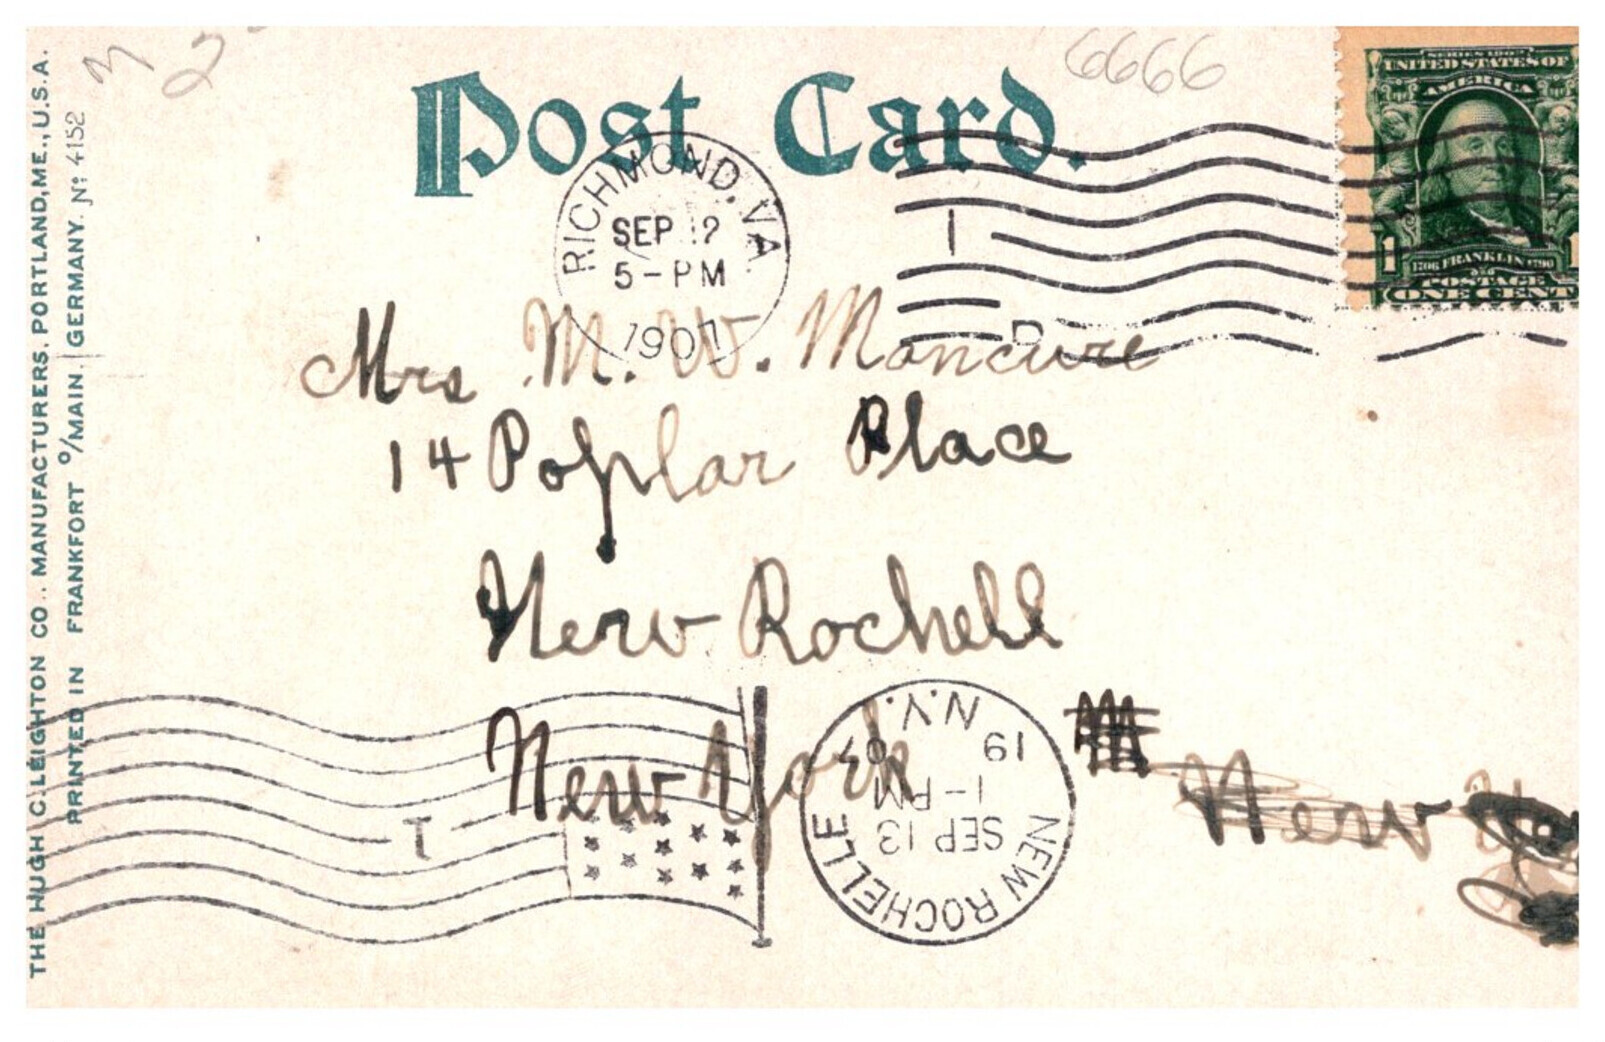 THE HUGH C. LEIGHTON CO.. MANUFACTURERS. PORTLAND, ME., U.S.A.
PRINTED IN FRANKFORT O/MAIN, GERMANY. No 4152
M 2
6666
Post Card.
SERIES 1902
UNITED STATES OF
AMERICA
1 1
1706 FRANKLIN 1790
POSTAGE
ONE CENT
RICHMOND, VA.
SEP 12
5-PM
1907
1
D
Mrs M. W. Moncure
14 Poplar Place
New Rochell
New York
New
1
NEW ROCHELLE
SEP 13
1-PM
19 07
N.Y.